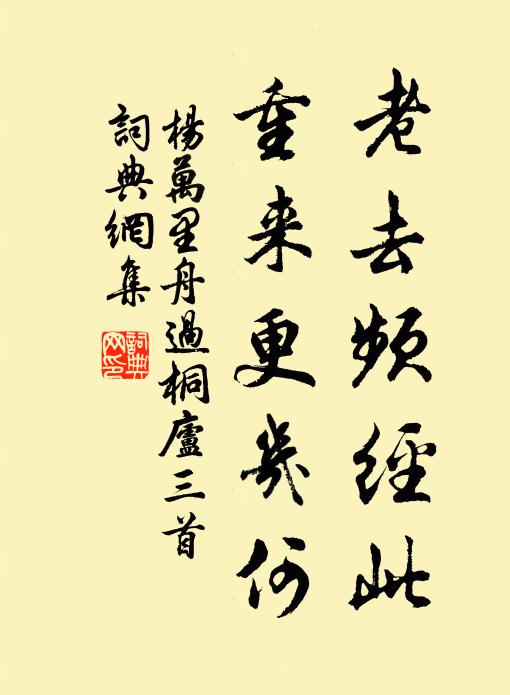 老去频經此
重来更幾何
楊萬里舟過桐廬三首
詞典網集
詞典網印